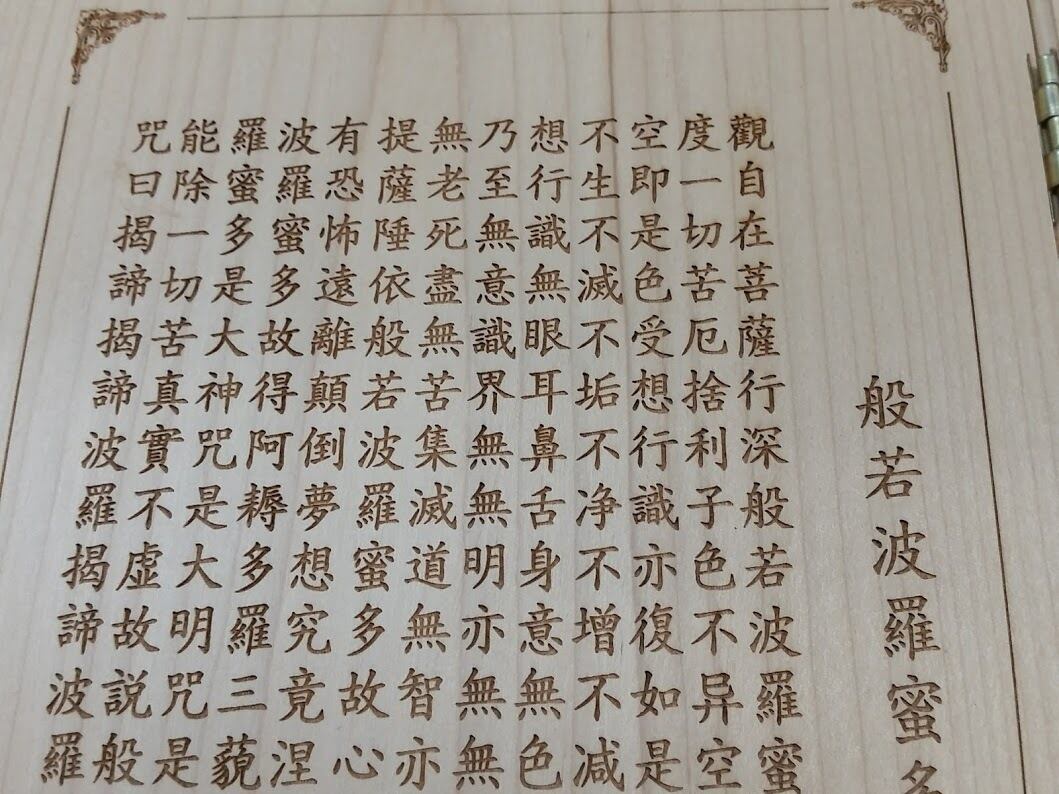 般若波羅蜜多
觀自在菩薩行深般若波羅蜜
度一切苦厄捨利子色不异空
空即是色受想行識亦復如是
不生不滅不垢不净不增不减
想行識無眼耳鼻舌身意無色
乃至無意識界無無明亦無無
無老死盡無苦集滅道無智亦
提薩陲依般若波羅蜜多故心
有恐怖遠離顛倒夢想究竟涅
波羅蜜多故得阿耨多羅三藐
羅蜜多是大神咒是大明咒是
能除一切苦真實不虛故説般
咒曰揭諦揭諦波羅揭諦波羅